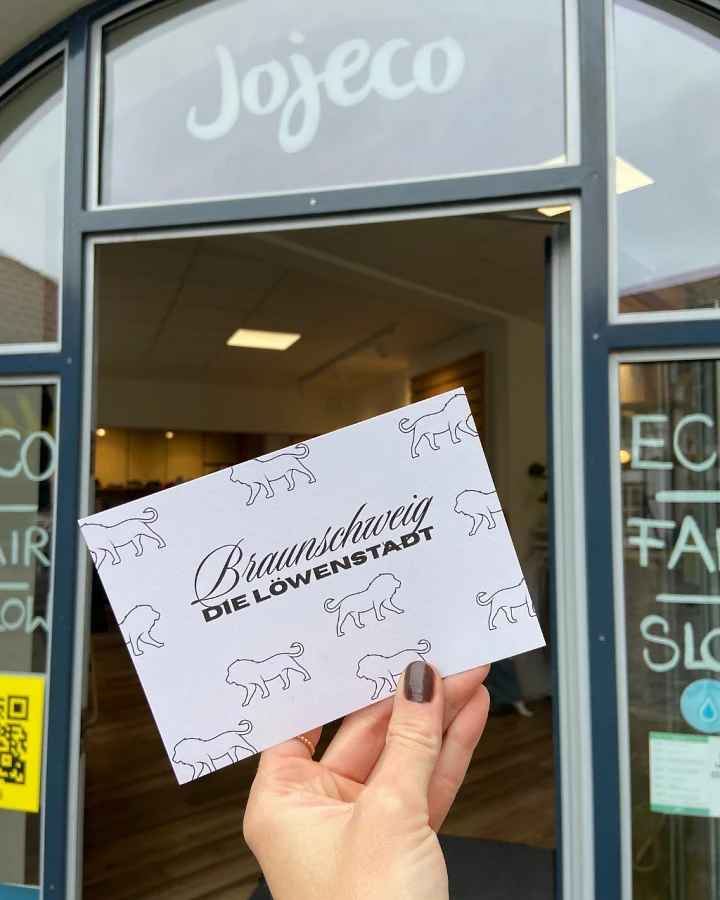 Jojeco
Braunschweig
DIE LÖWENSTADT
CO
AIR
LOW
EC
FAI
SLO